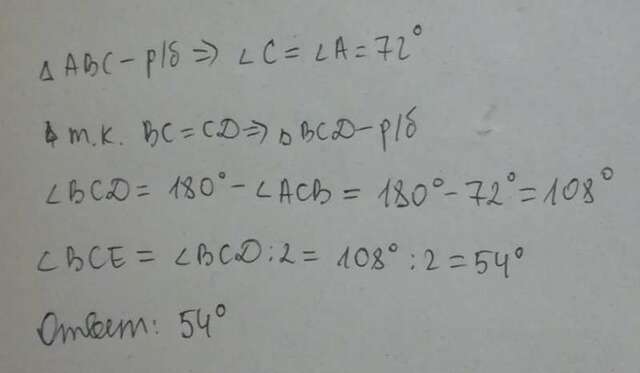 △ ABC – р/б ⇒ ∠C = ∠A = 72°
т.к. BC = CD ⇒ △ BCD – р/б
∠BCD = 180° – ∠ACB = 180° – 72° = 108°
∠BCE = ∠BCD : 2 = 108° : 2 = 54°
Ответ: 54°